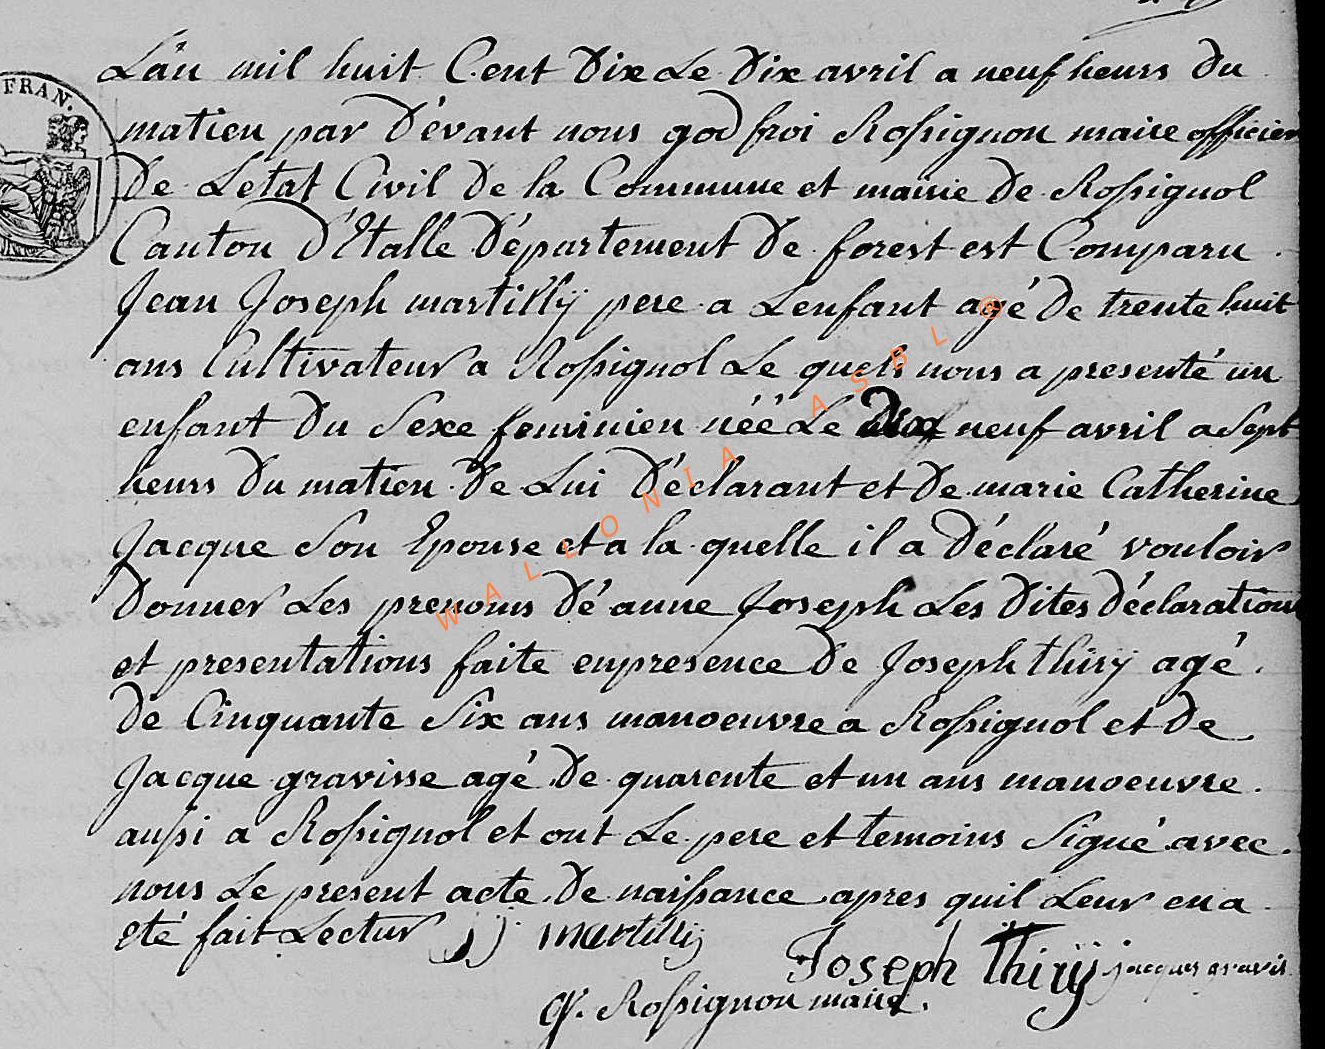 FRAN.
L'an mil huit Cent Dix Le Dix avril a neuf heurs du
matien par D'évant nous godfroi Rossignon maire officier
de Letat Civil de la Commune et mairie de Rossignol
Canton d'Etalle Département de forest est Comparu
Jean Joseph martilly pere a Lenfant agé de trente huit
ans Cultivateur a Rossignol Le quel nous a presenté un
enfant du Sexe feminien néé Le neuf avril a Sept
heurs du matien de Lui Déclarant et de marie Catherine
Jacque Son Epouse et a la quelle il a Déclaré vouloir
Donner Les prenoms Dé anne Joseph Les Dites déclaration
et presentations faite enpresence de Joseph thiry agé
de Cinquante Six ans manoeuvre a Rossignol et de
Jacque gravisse agé de quarente et un ans manoeuvre
aussi a Rossignol et ont Le pere et temoins Signé avec
nous Le present acte de naissance apres quil Leur en a
eté fait Lectur JJ martilly
Joseph Thiry jacques gravis
G. Rossignon maire.
WALLONIA ASBL ®